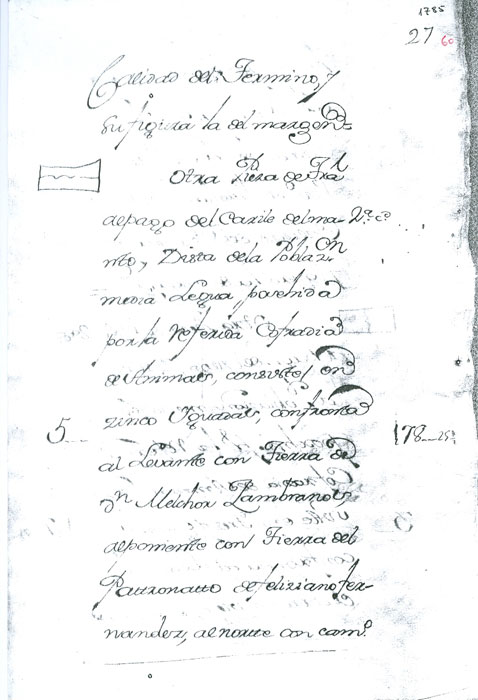 1785
27 60
Calidad del Termino, y
su figura la del margen
Otra Pieza de Trã
al pago del Carril del ma-
nto, Dista de la Poblazon
media Legua posehida
por la referida Cofradia
de Animas, consiste en
5 zinco Yguadas, confronta 178
al Levante con Tierra de
Dn Melchor Zambrano
al pomente con Tierra del
Patronatto de feliziano fer-
nandez, al norte con camo